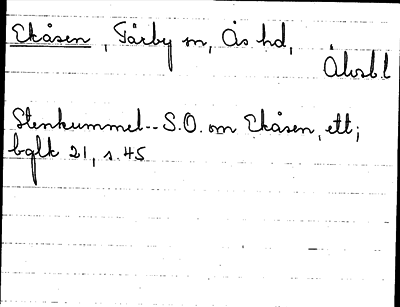 Ekåsen, Tärby sn, Ås hd,
Älvsbl
Stenkummel -- S.O. om Ekåsen, ett;
bglk 21, s. 45